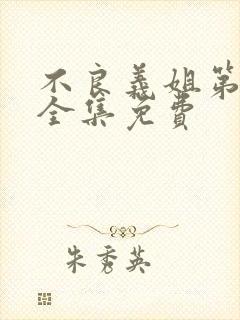 不良義姐第
全集免費
朱秀英